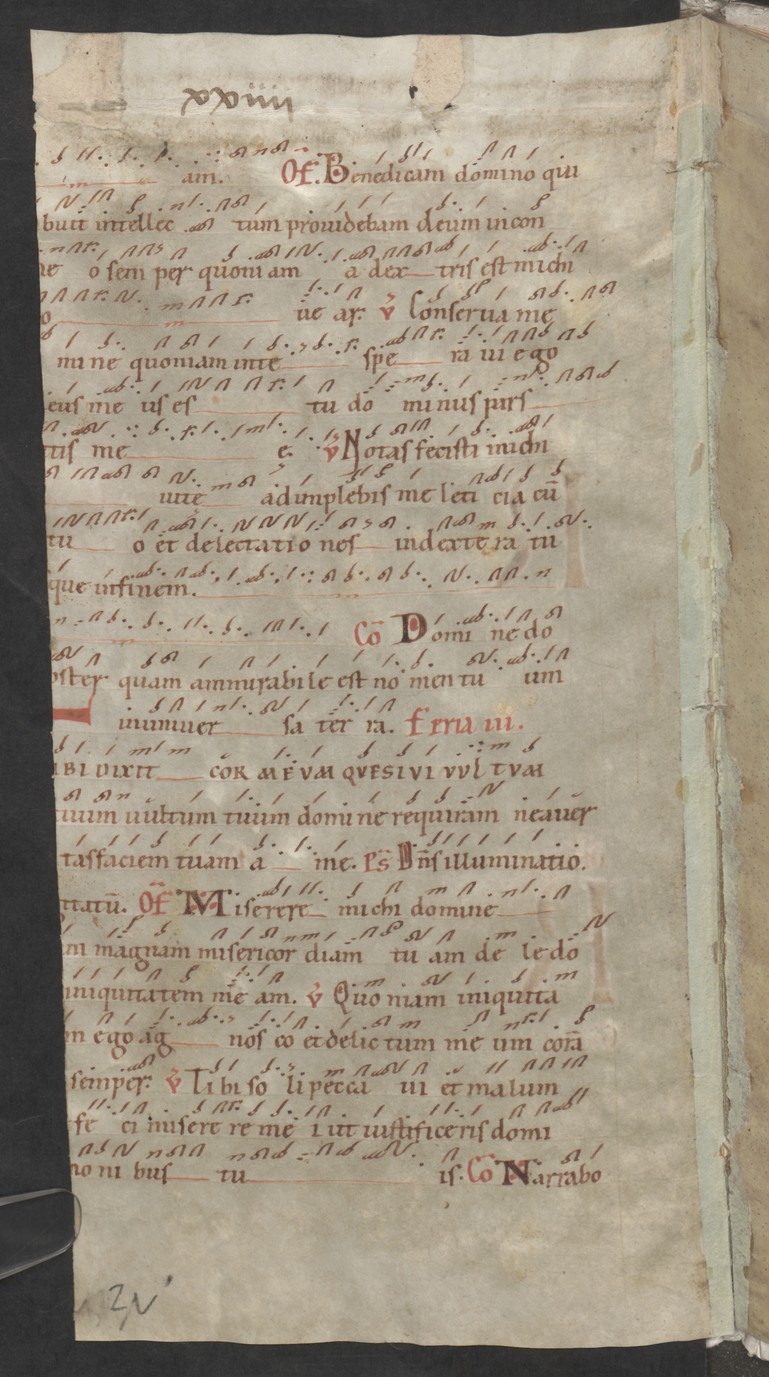 am. Of. Benedicam domino qui
buit intellec tum prouidebam deum in con
o sem per quoniam a dex tris est michi
ue ar. V Conserua me
mi ne quoniam in te spe ra ui ego
eus me us es tu do minus pars
tis me e. V Notas fecisti michi
uite adimplebis me leti cia cū
tu o et delectatio nes in dexte ra tu
que in finem.
Cō Domi ne do
oster quam ammirabile est no men tu um
in uniuer sa ter ra. Feria iii.
IBI DIXIT COR MEUM QUESIVI VULTUM
tuum uultum tuum domi ne requiram ne auer
tas faciem tuam a me. Ps Dn̄s illuminatio.
Of Miserere michi domine
m magnam misericor diam tu am de le do
iniquitatem me am. V Quo niam iniquita
m ego ag nos co et delic tum me um corā
semper. V Tibi so li pecca ui et malum
fe ci misere re me i ut iustificeris domi
mo ni bus tu is. Cō Narrabo